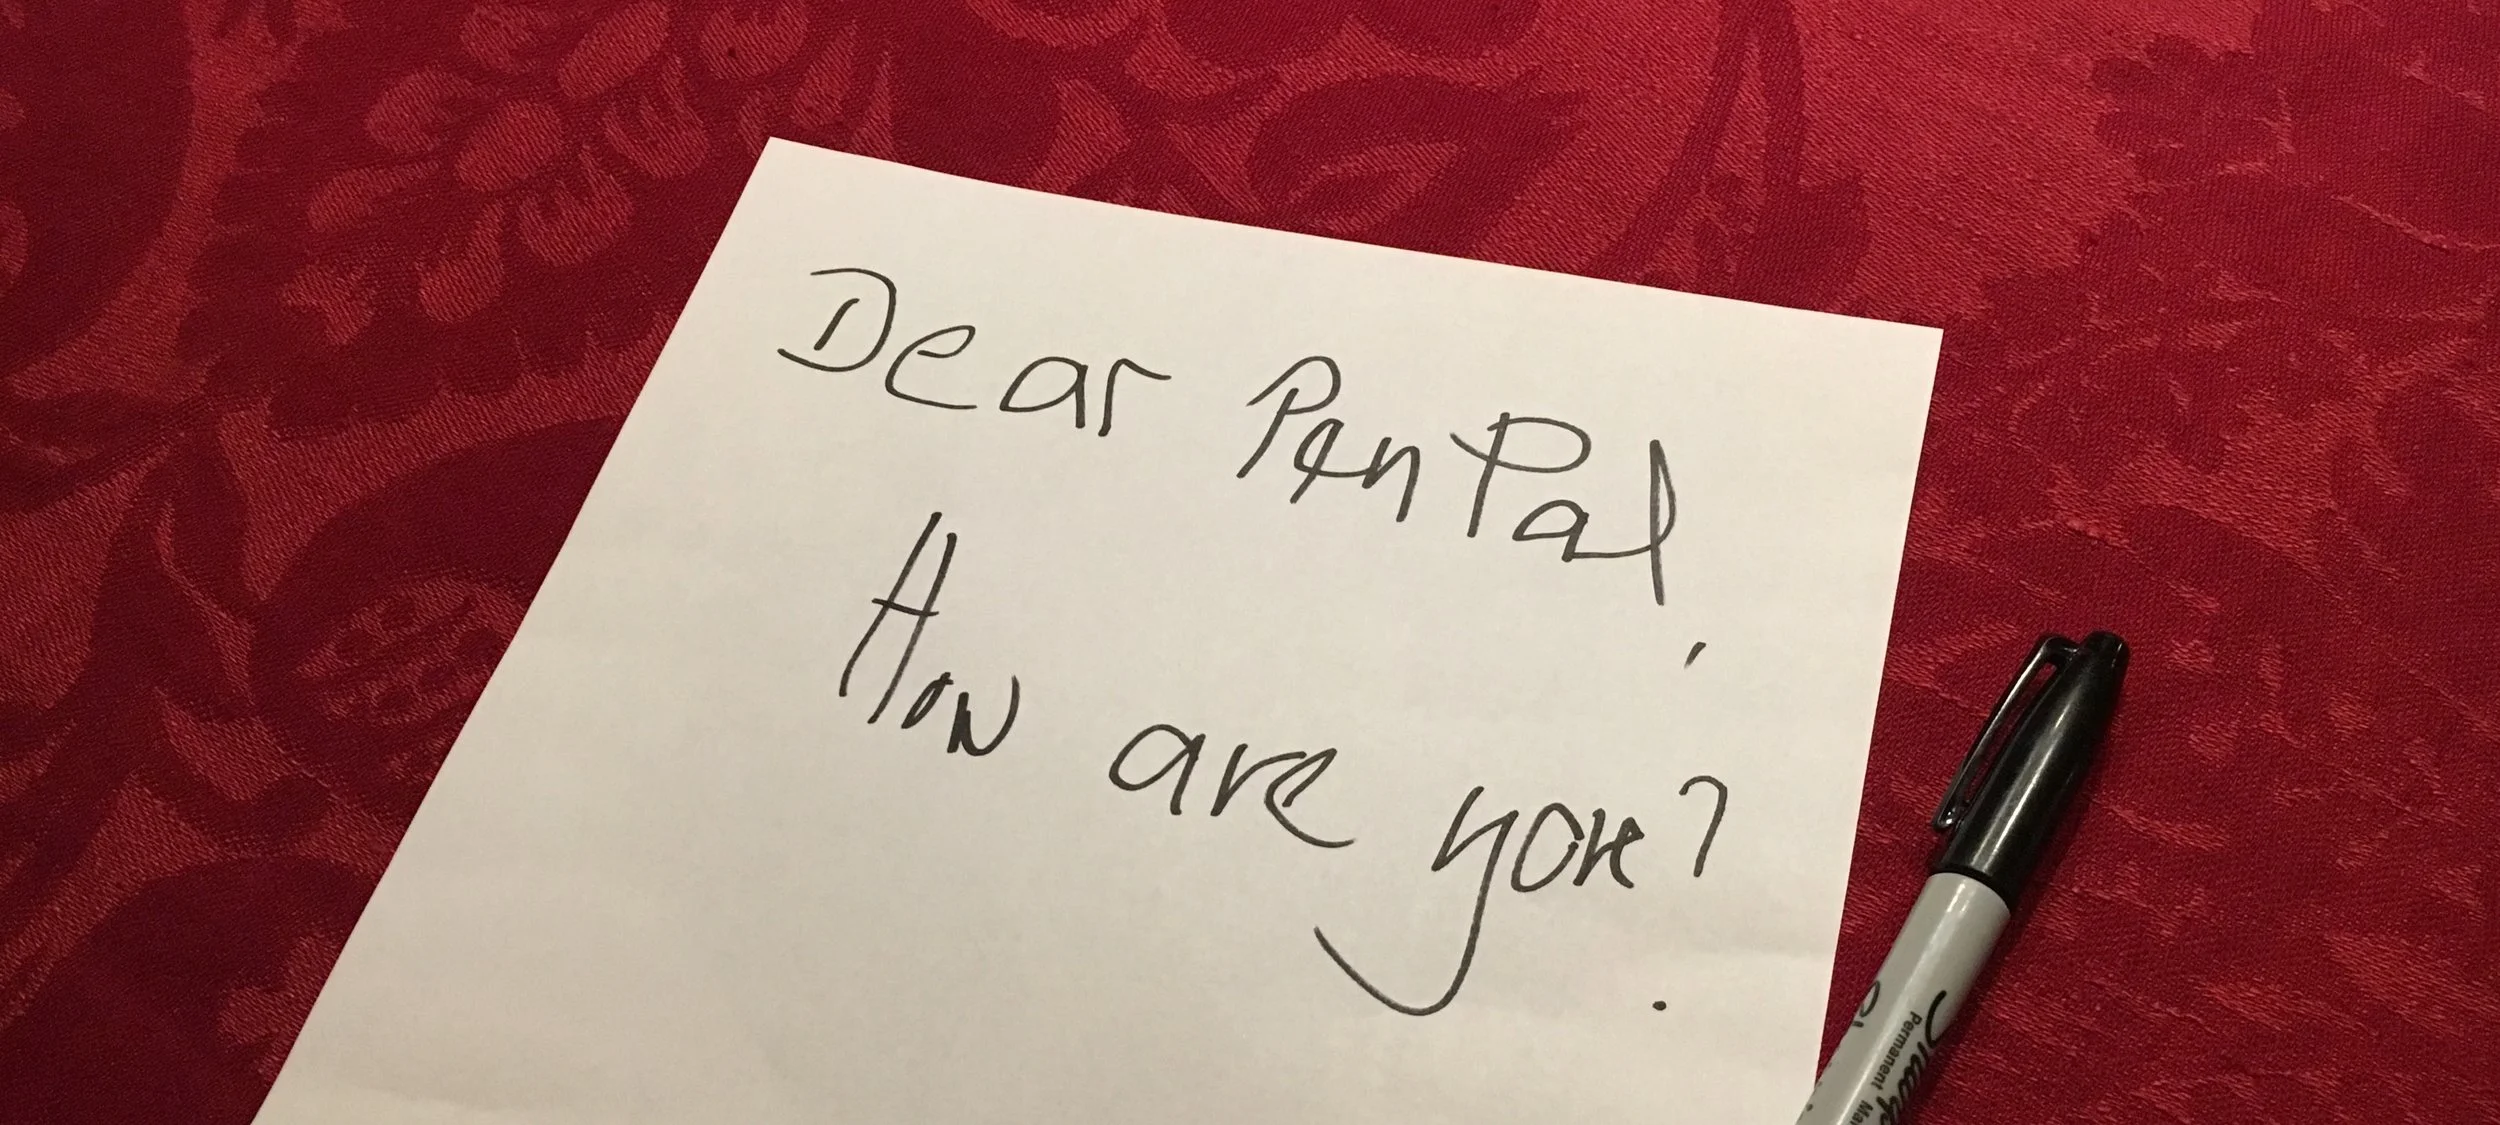 Dear PenPal,
How are you?
Sharpie
Permanent